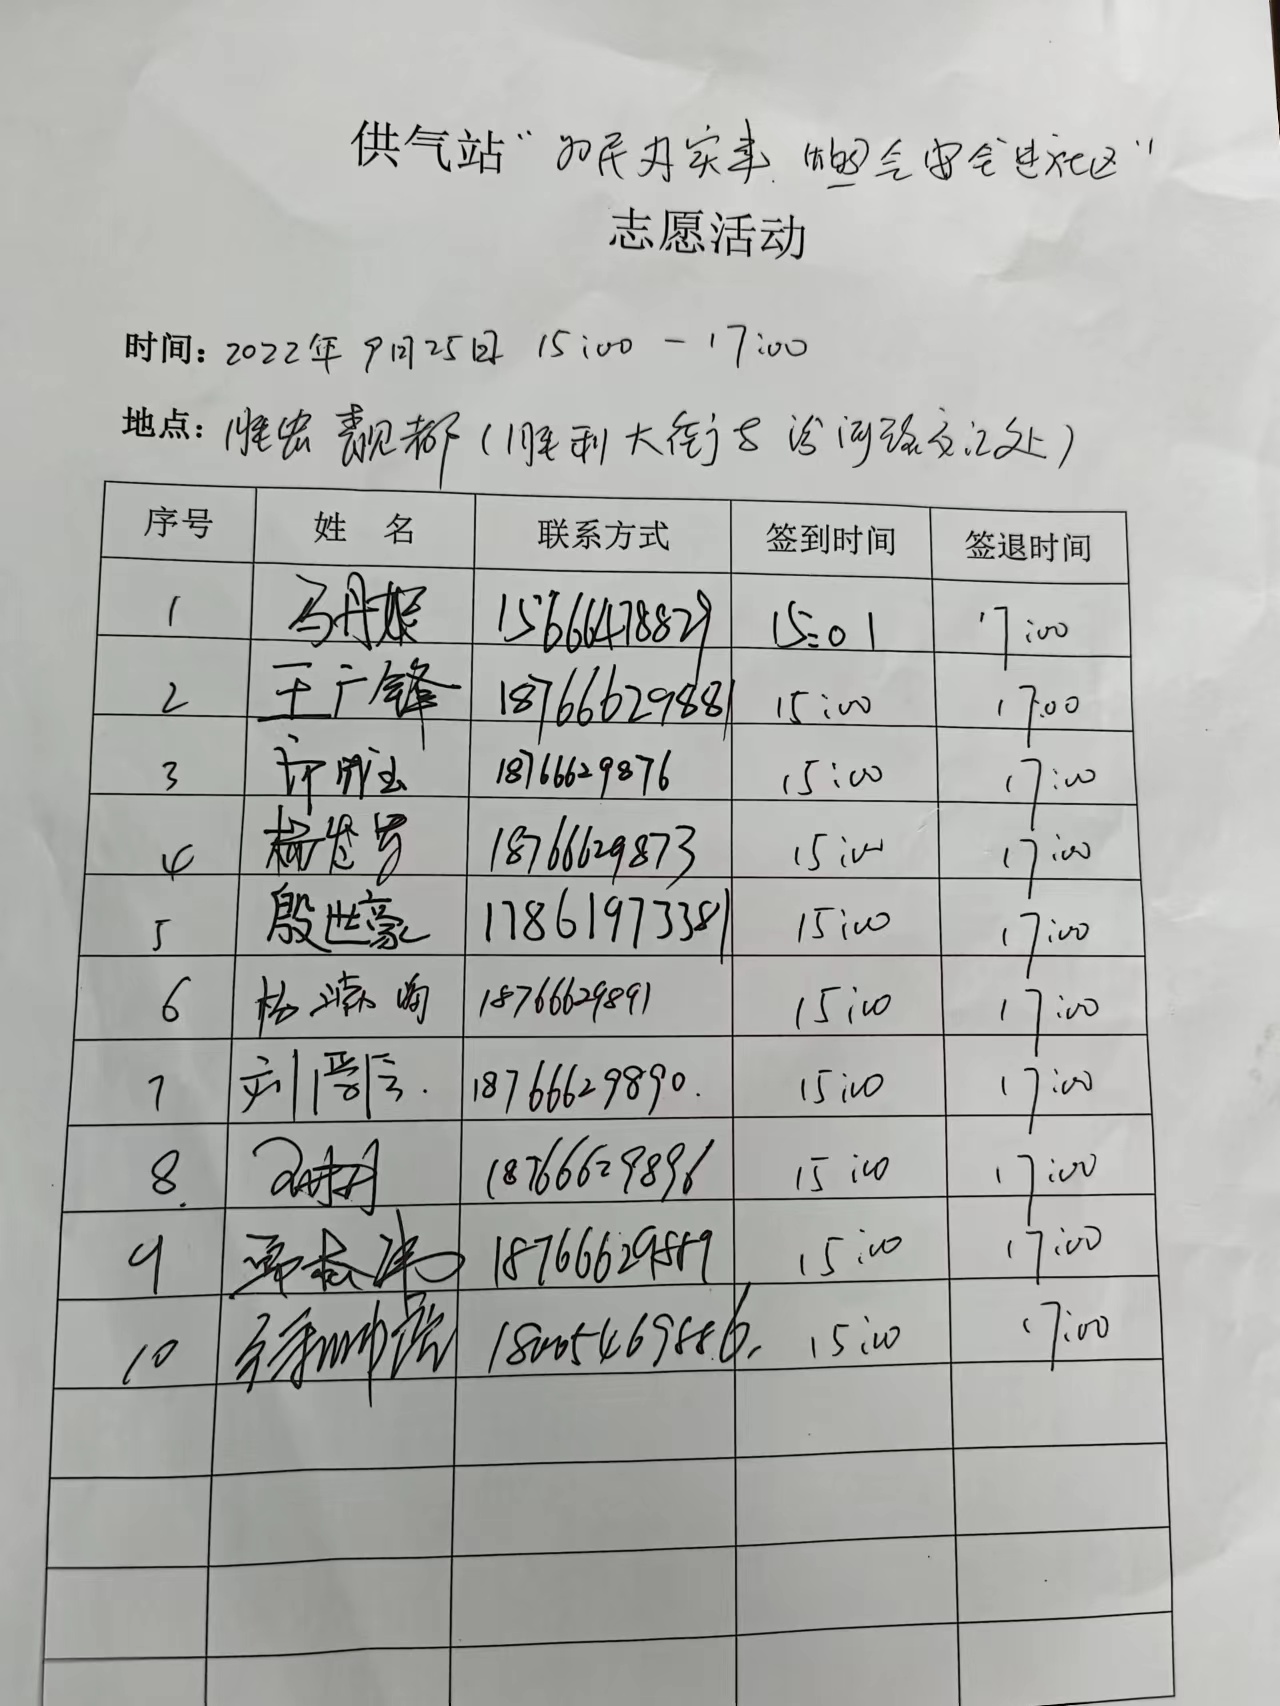 供气站“为民办实事 燃气安全进社区”
志愿活动
时间：2022年9月25日 15:00 - 17:00
地点：胜宏靓都（胜利大街与潍河路交汇处）
序号 姓 名 联系方式 签到时间 签退时间
1 马丹妮 15666478829 15:01 17:00
2 王广锋 18766629881 15:00 17:00
3 18766629876 15:00 17:00
4 18766629873 15:00 17:00
5 殷世豪 17861973381 15:00 17:00
6 18766629891 15:00 17:00
7 刘晋 18766629890. 15:00 17:00
8. 18766629896 15:00 17:00
9 18766629889 15:00 17:00
10 18005469886. 15:00 17:00